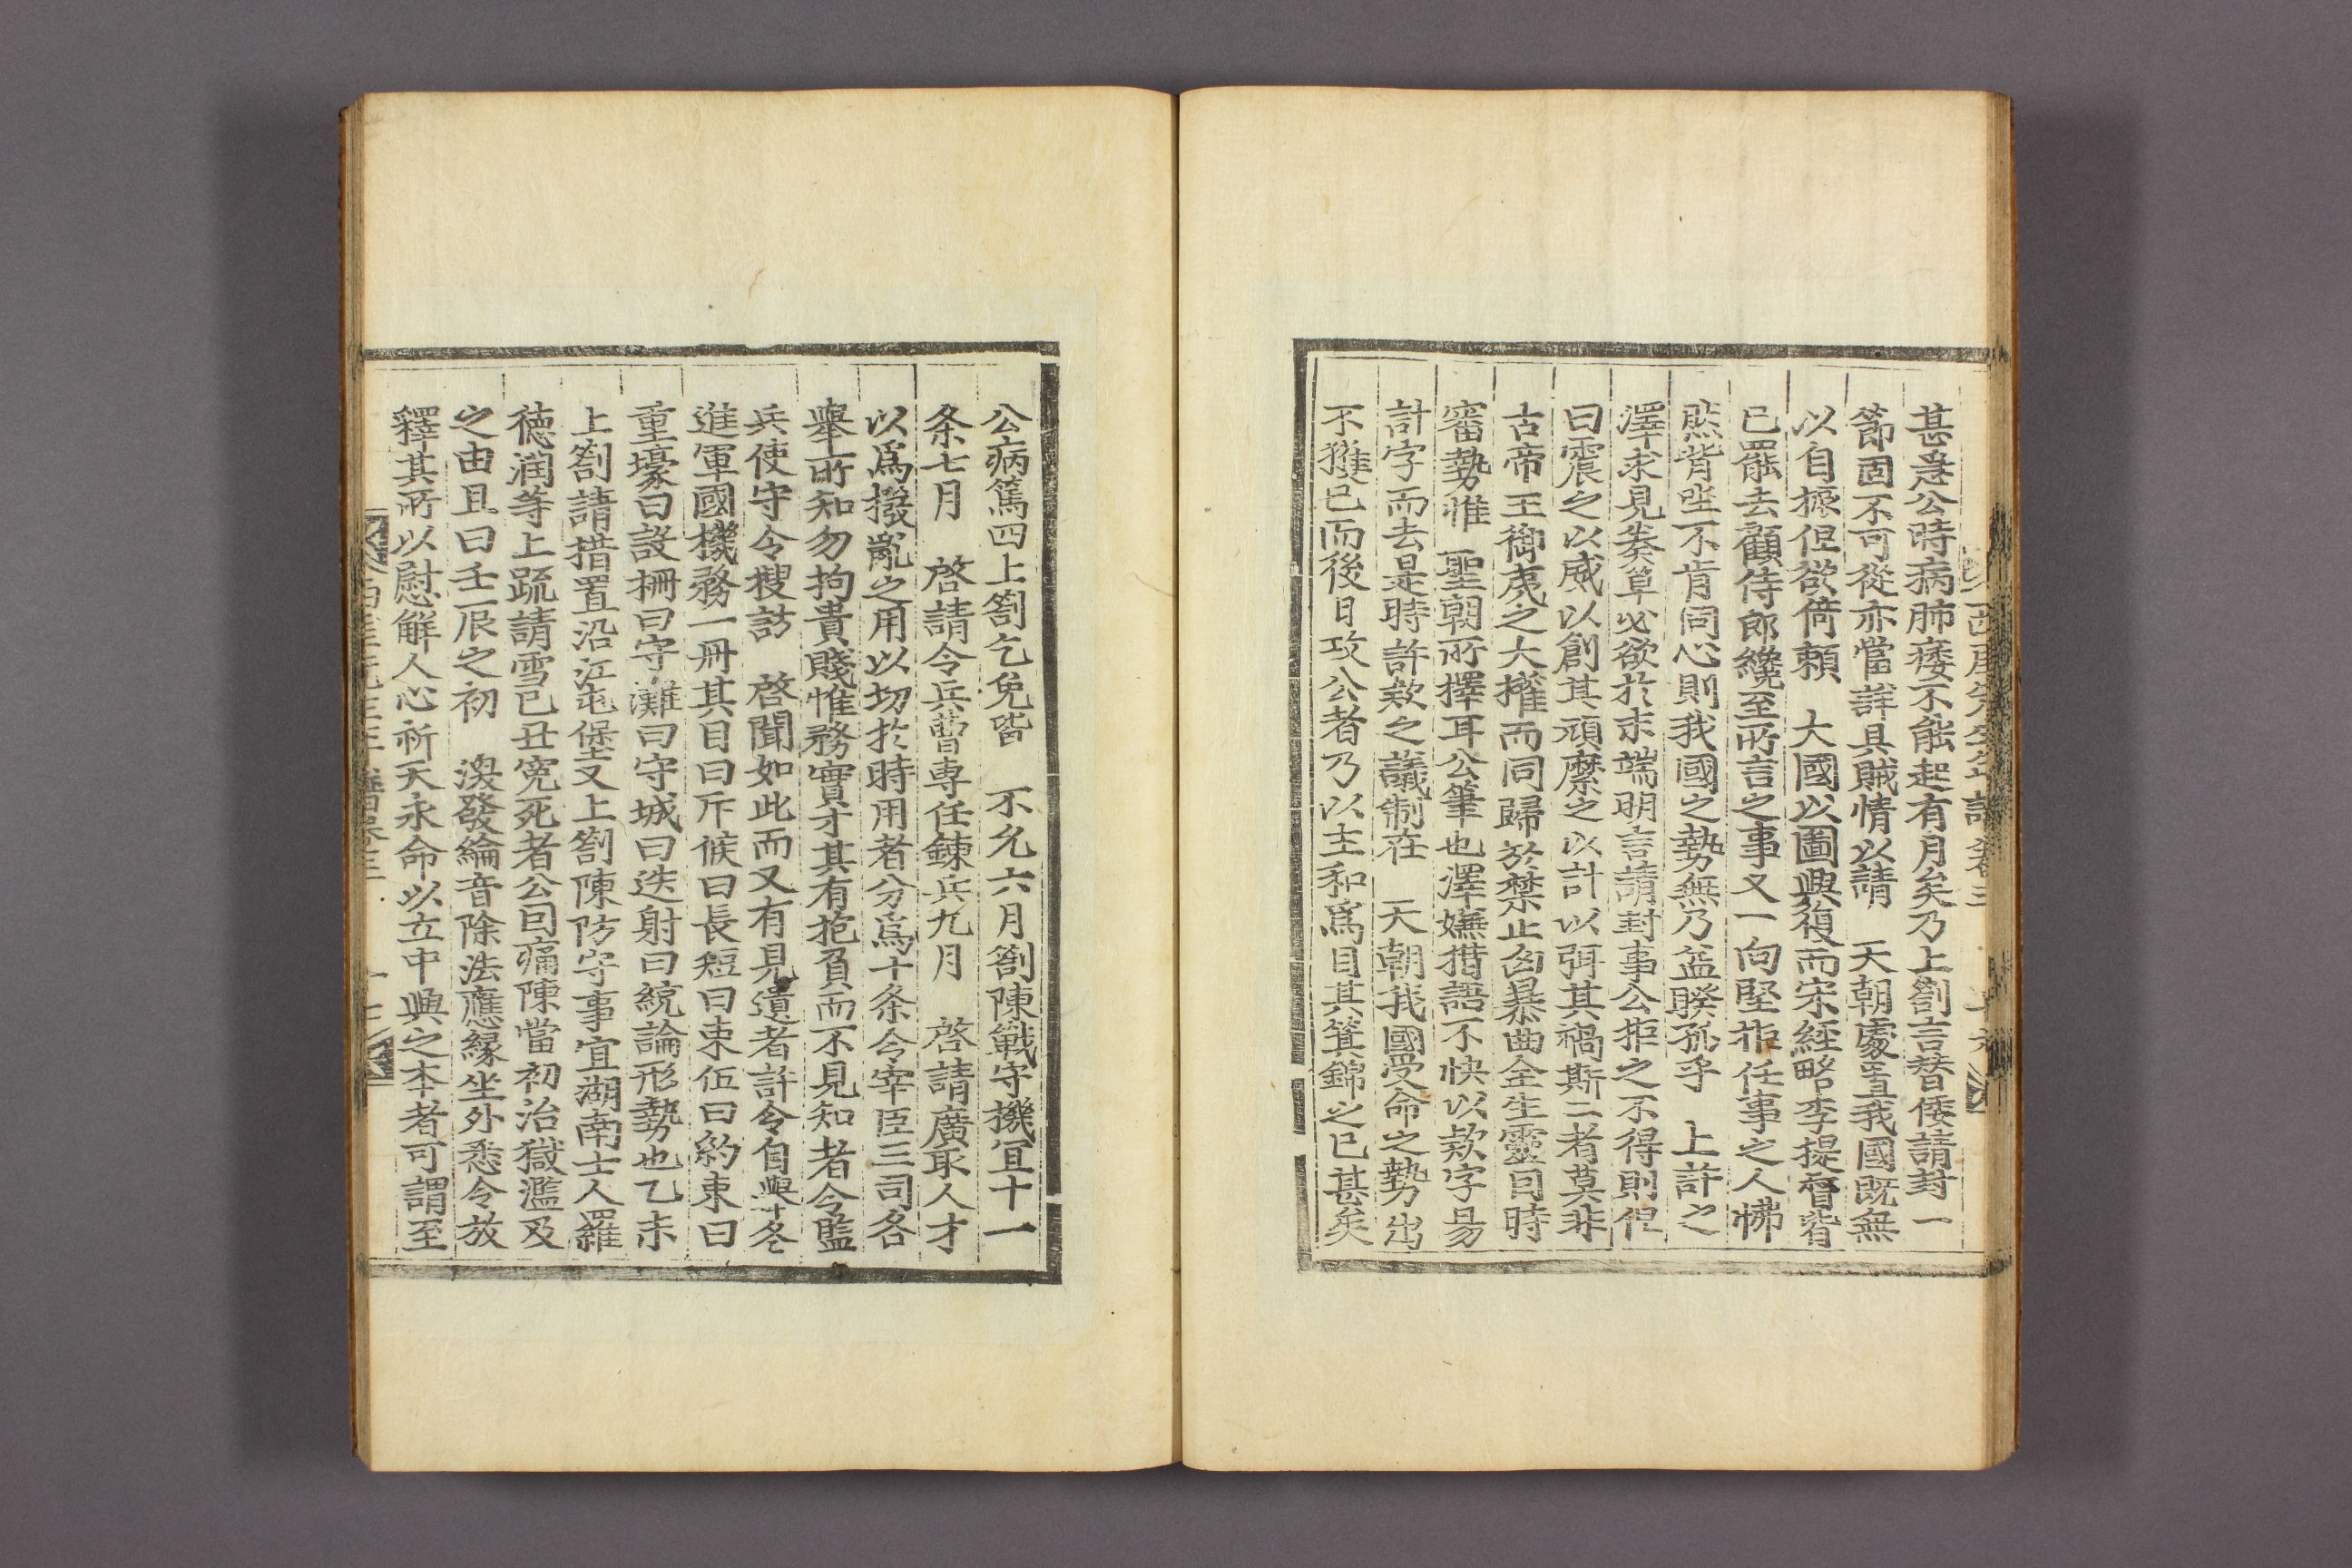 甚急公時病肺痿不能起有月矣乃上劄言替倭請封一
節固不可從亦當詳具賊情以請 天朝處置我國旣無
以自振但欲倚賴 大國以圖興復而宋經略李提督皆
已罷去顧侍郞纔至所言之事又一向堅拒任事之人怫
然背坐不肯同心則我國之勢無乃益睽孤乎 上許之
澤求見奏草必欲於末端明言請封事公拒之不得則但
曰震之以威以創其頑縻之以計以弭其禍斯二者莫非
古帝王御夷之大權而同歸於禁止凶暴曲全生靈目時
審勢惟 聖朝所擇耳公筆也澤嫌措語不快以款字易
計字而去是時許款之議制在 天朝我國受命之勢出
不獲已而後日攻公者乃以主和爲目其箕錦之已甚矣
公病篤四上劄乞免皆 不允六月劄陳戰守機宜十一
条七月 啓請令兵曹專任鍊兵九月 啓請廣取人才
以爲撥亂之用以切於時用者分爲十条令宰臣三司各
擧所知勿拘貴賤惟務實才其有抱負而不見知者令監
兵使守令搜訪 啓聞如此而又有見遺者許令自擧冬
進軍國機務一册其目曰斥候曰長短曰束伍曰約束曰
重壕曰設柵曰守灘曰守城曰迭射曰統論形勢也乙未
上劄請措置沿江屯堡又上劄陳防守事宜湖南士人羅
德潤等上疏請雪已丑寃死者公回痛陳當初治獄濫及
之由且曰壬辰之初 渙發綸音除法應緣坐外悉令放
釋其所以慰解人心祈天永命以立中興之本者可謂至